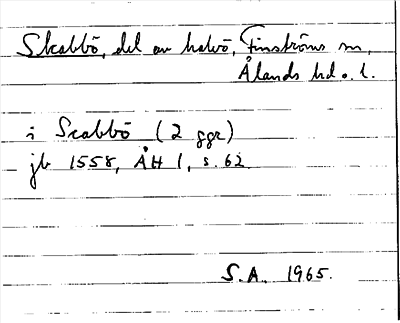 Skabbö, del av halvö, Finströms sn,
Ålands hd o. l.
i Scabbö (2 ggr)
jb 1558, ÅH 1, s. 62
S.A. 1965.